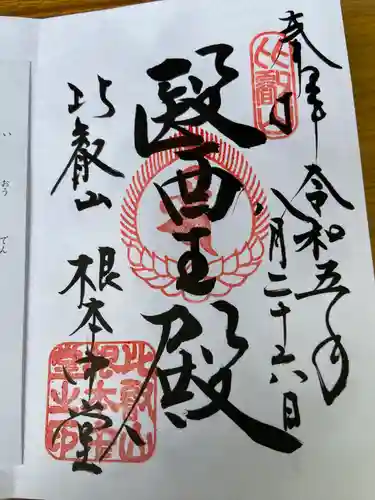 奉拝
令和五年
八月二十六日
醫王殿
比叡山
根本中堂
比叡山
根本中
堂之印
い
おう
でん